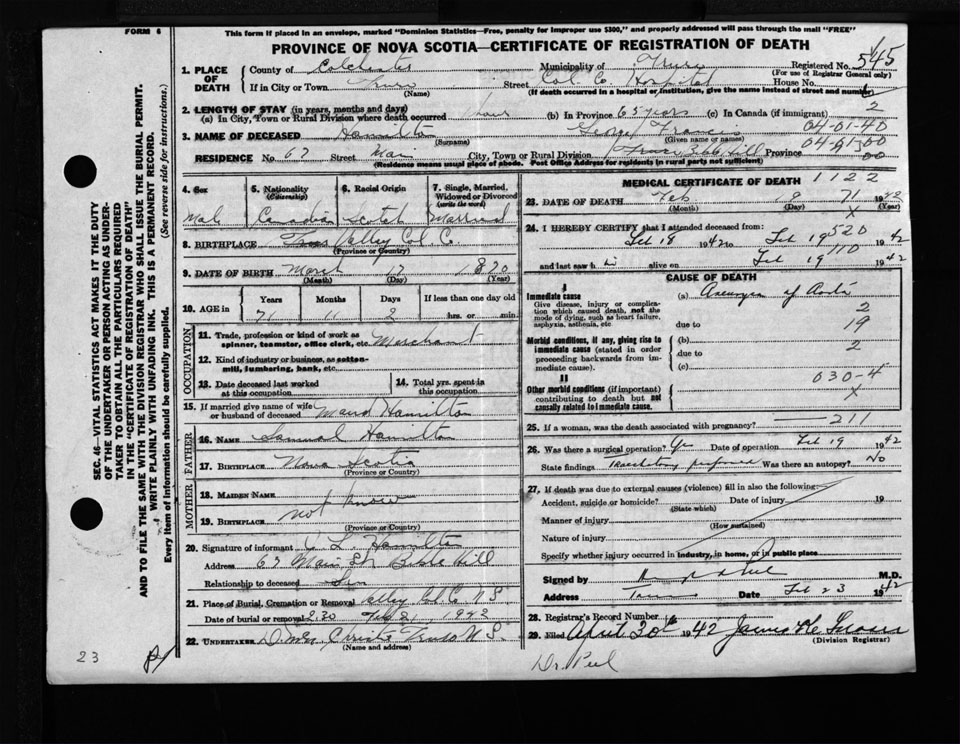 FORM 6
This form if placed in an envelope, marked "Dominion Statistics—Free, penalty for improper use $300," and properly addressed will pass through the mail "FREE"
PROVINCE OF NOVA SCOTIA—CERTIFICATE OF REGISTRATION OF DEATH
545
1. PLACE OF DEATH
County of Colchester Municipality of Truro Registered No.
(For use of Registrar General only)
If in City or Town Truro Street Col. Co. Hospital House No.
(Name) (If death occurred in a hospital or institution, give the name instead of street and number)
2. LENGTH OF STAY (in years, months and days)
(a) In City, Town or Rural Division where death occurred 1 hour (b) In Province 65 years (c) In Canada (if immigrant) 2
3. NAME OF DECEASED Hamilton George Francis 04-01-40
(Surname) (Given name or names)
RESIDENCE No. 67 Street Main City, Town or Rural Division Truro Bible Hill Province
(Residence means usual place of abode. Post Office Address for residents in rural parts not sufficient)
4. Sex
Male
5. Nationality (Citizenship)
Canadian
6. Racial Origin
Scotch
7. Single, Married, Widowed or Divorced (write the word)
Married
8. BIRTHPLACE Valley Col. C.
(Province or Country)
9. DATE OF BIRTH March 17 1870
(Month) (Day) (Year)
10. AGE in Years Months Days If less than one day old
71 11 2 hrs. or min.
OCCUPATION
11. Trade, profession or kind of work as spinner, teamster, office clerk, etc. Merchant
12. Kind of industry or business, as cotton-mill, lumbering, bank, etc.
13. Date deceased last worked at this occupation
14. Total yrs. spent in this occupation
15. If married give name of wife or husband of deceased Maud Hamilton
FATHER
16. NAME Samual Hamilton
17. BIRTHPLACE Nova Scotia
(Province or Country)
MOTHER
18. MAIDEN NAME
not know
19. BIRTHPLACE
(Province or Country)
20. Signature of informant L. Hamilton
Address 67 Main St Bible Hill
Relationship to deceased Son
21. Place of Burial, Cremation or Removal Valley Col. C. N.S.
Date of burial or removal 2.30 Feb 21 1942
22. UNDERTAKER Truro N.S.
(Name and address)
MEDICAL CERTIFICATE OF DEATH 1122
23. DATE OF DEATH Feb 19 71 1942
(Month) (Day) (Year)
X
24. I HEREBY CERTIFY that I attended deceased from:
Feb 18 1942 to Feb 19 1942
520
and last saw h im alive on Feb 19 1942
110
CAUSE OF DEATH
I
Immediate cause
Give disease, injury or complication which caused death, not the mode of dying, such as heart failure, asphyxia, asthenia, etc
(a) Aneurysm of Aorta
2
due to 19
Morbid conditions, if any, giving rise to immediate cause (stated in order proceeding backwards from immediate cause).
(b)
2
due to
(c)
II
Other morbid conditions (if important) contributing to death but not causally related to immediate cause.
030-4
X
211
25. If a woman, was the death associated with pregnancy?
26. Was there a surgical operation? Yes Date of operation Feb 19 1942
State findings Was there an autopsy? No
27. If death was due to external causes (violence) fill in also the following:
Accident, suicide or homicide? Date of injury 19
(State which)
Manner of injury
(How sustained)
Nature of injury
Specify whether injury occurred in industry, in home, or in public place
Signed by M.D.
Address Truro Date Feb 23 1942
28. Registrar's Record Number
29. Filed April 30th 1942 James
(Division Registrar)
Dr. Peel
23
SEC. 46—VITAL STATISTICS ACT MAKES IT THE DUTY
OF THE UNDERTAKER OR PERSON ACTING AS UNDER-
TAKER TO OBTAIN ALL THE PARTICULARS REQUIRED
IN THE "CERTIFICATE OF REGISTRATION OF DEATH"
AND TO FILE THE SAME WITH THE DIVISION REGISTRAR WHO SHALL ISSUE THE BURIAL PERMIT.
WRITE PLAINLY WITH UNFADING INK. THIS IS A PERMANENT RECORD.
Every item of information should be carefully supplied. (See reverse side for instructions.)